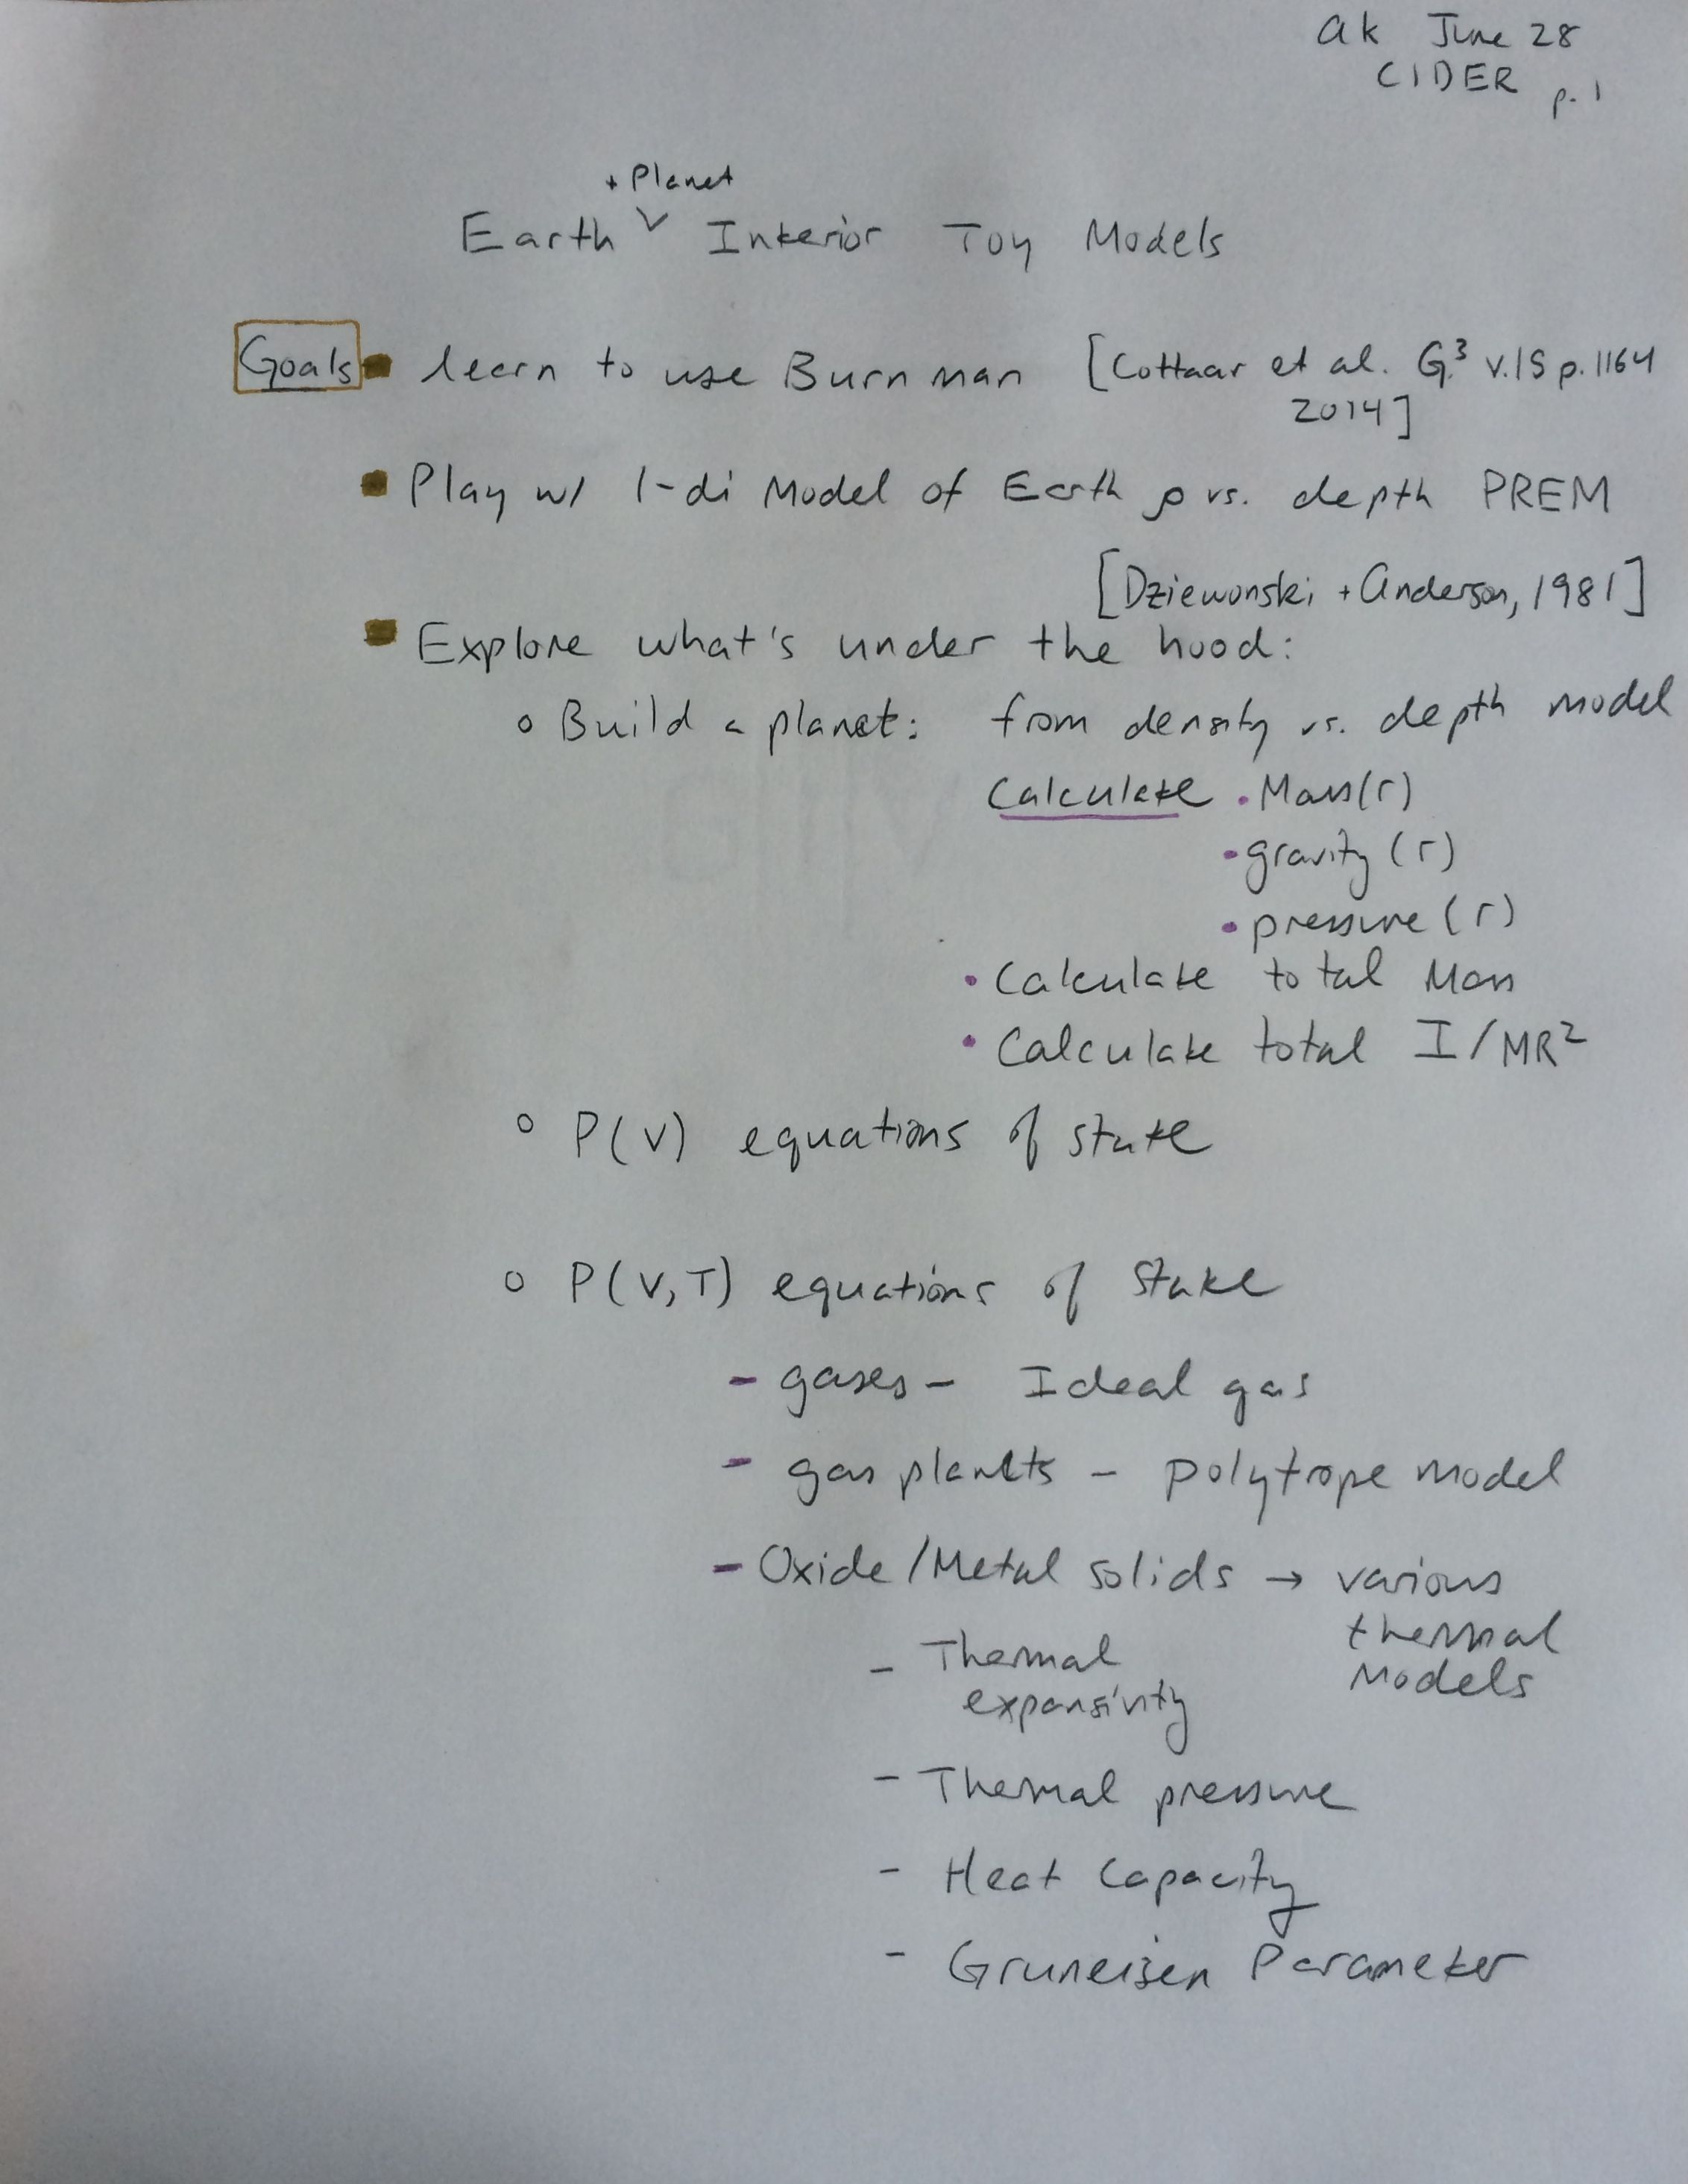 ak June 28
CIDER p. 1
+ Planet
Earth ∨ Interior Toy Models
Goals ▪ learn to use Burnman [Cottaar et al. G.³ v.15 p.1164
2014]
▪ Play w/ 1-di Model of Earth ρ vs. depth PREM
[Dziewonski + Anderson, 1981]
▪ Explore what's under the hood:
o Build a planet: from density vs. depth model
Calculate • Mass(r)
• gravity (r)
• pressure (r)
• Calculate total Mass
• Calculate total I/MR²
o P(V) equations of state
o P(V,T) equations of state
- gases - Ideal gas
- gas planets - polytrope model
- Oxide/Metal solids → various
thermal
Models
- Thermal
expansivity
- Thermal pressure
- Heat Capacity
- Gruneisen Parameter